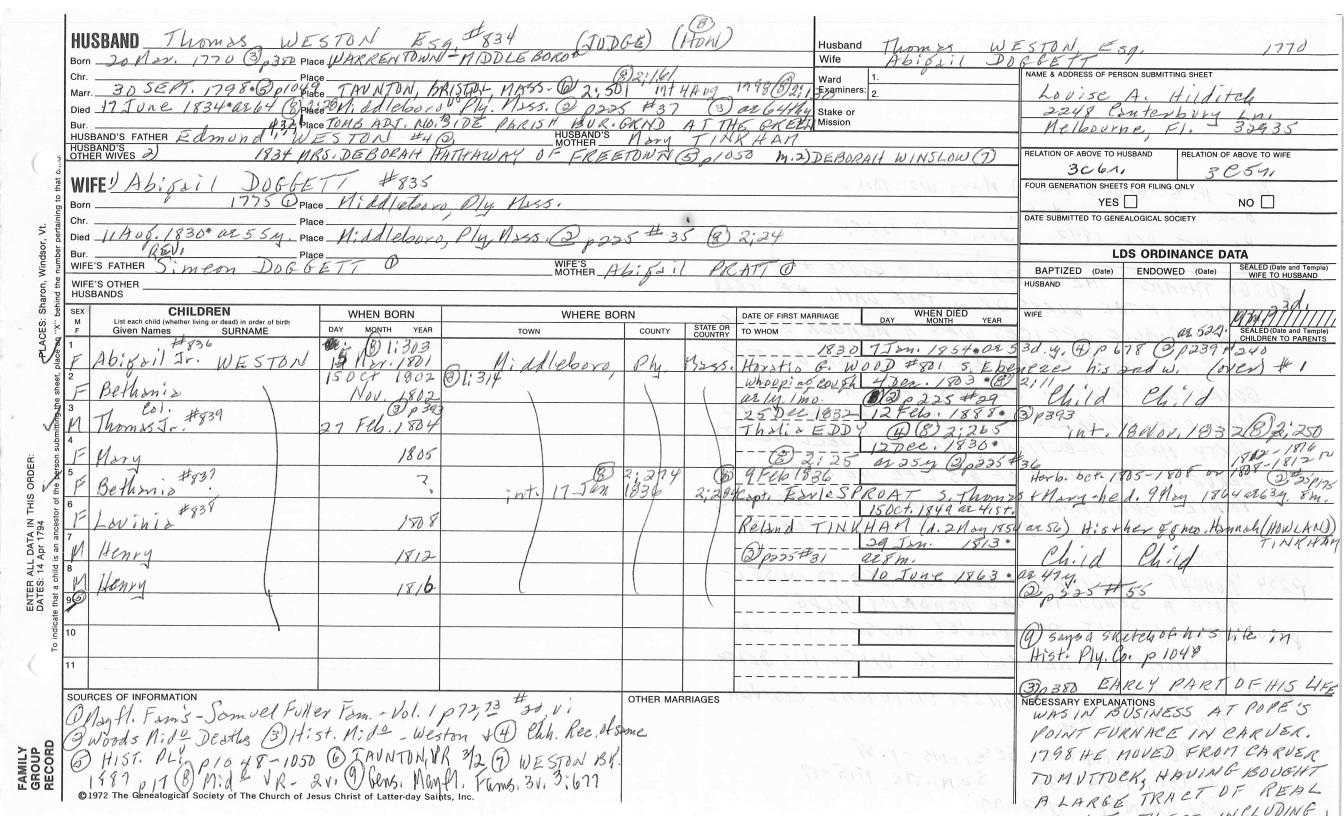 HUSBAND Thomas WESTON Esq. #834 (JUDGE) (HON) (8)
Born 20 Mar. 1770 (3) p380 Place WARRENTOWN - MIDDLEBORO
Chr. Place
Marr. 30 SEPT. 1798 Place TAUNTON, BRISTOL, MASS. (6) 2:501 int 4 Aug 1798
(8) 2:161
Died 17 June 1834 ae 64 Place Middleboro, Ply. Mass. (2) p225 #37 (3) ae 64th
Bur. Place TOMB ADJ. NO. SIDE PARISH BUR. GRND AT THE GREEN
HUSBAND'S FATHER Edmund WESTON #4 (2) HUSBAND'S MOTHER Mary TINKHAM
HUSBAND'S OTHER WIVES 2) 1834 MRS. DEBORAH HATHAWAY OF FREETOWN (5) p1050 m. 2) DEBORAH WINSLOW (7)
WIFE 1) Abigail DOGGETT #835
Born 1775 (1) Place Middleboro, Ply Mass.
Chr. Place
Died 11 Aug. 1830 ae 55y. Place Middleboro, Ply, Mass. (2) p225 #35 (8) 2:24
Bur. Place
WIFE'S FATHER REV. Simeon DOGGETT (1) WIFE'S MOTHER Abigail PRATT (1)
WIFE'S OTHER HUSBANDS
Husband Thomas WESTON, Esq. 1770
Wife Abigail DOGGETT
Ward Examiners: 1. 2.
Stake or Mission
NAME & ADDRESS OF PERSON SUBMITTING SHEET
Louise A. Hilditch
2248 Canterbury Ln.
Melbourne, Fl. 32935
RELATION OF ABOVE TO HUSBAND RELATION OF ABOVE TO WIFE
3C6r. 3C5r.
FOUR GENERATION SHEETS FOR FILING ONLY
YES NO
DATE SUBMITTED TO GENEALOGICAL SOCIETY
LDS ORDINANCE DATA
BAPTIZED (Date) ENDOWED (Date) SEALED (Date and Temple) WIFE TO HUSBAND
HUSBAND
WIFE
SEALED (Date and Temple) CHILDREN TO PARENTS
SEX M F CHILDREN
List each child (whether living or dead) in order of birth
Given Names SURNAME
WHEN BORN DAY MONTH YEAR
WHERE BORN TOWN COUNTY STATE OR COUNTRY
DATE OF FIRST MARRIAGE TO WHOM
WHEN DIED DAY MONTH YEAR
1 F Abigail Jr. WESTON #836 (8) 1:303 Mar. 1801 Middleboro, Ply Mass. 1830 7 Jan. 1854 (4) p678 (2) p239 #240
Horatio G. WOOD #801 S. Ebenezer his 2nd w. (over) #1
2 F Bethania 15 Oct 1802 (8) 1:314 Nov. 1802 whooping cough 4 Dec. 1803 (8) 2:11
ae 1y. 1mo. (2) p225 #29 Child Child
3 M Col. Thomas Jr. #839 (3) p393 27 Feb. 1804 25 Dec 1832 12 Feb. 1888 (3) p393
Thalia EDDY (4) (8) 2:265 int. 18 Nov, 1832 (8) 2:250
4 F Mary 1805 12 Dec. 1830
(8) 2:25 ae 25y (2) p225 #36
5 F Bethania #837 ? (8) 2:274 9 Feb 1836 Herb. bct. 1805-1808 or 1808-1812 or 1812-1816
int. 17 Jan 1836 Capt. Earle SPROAT S. Thomas & Mary - he d. 9 May 1864 ae 63y. 8m.
6 F Lavinia #838 1808 15 Oct. 1849 ae 41st.
Reland TINKHAM (d. 2 May 1854 ae 56) His ther of mo. Hannah (HOWLAND) TINKHAM
7 M Henry 1812 29 Jan. 1813
(2) p225 #31 ae 8m. Child Child
8 M Henry 1816 10 June 1863 ae 47y.
(2) p225 #55
9
10
11
(9) says a sketch of his life in
Hist. Ply. Co. p 1048
(3) p380 EARLY PART OF HIS LIFE
SOURCES OF INFORMATION
(1) Mayfl. Fam's - Samuel Fuller Fam. - Vol. 1 p72, 73 #20, vi
(2) Woods Mid° Deaths (3) Hist. Mid° - Weston & (4) Chh. Rec. of same
(5) HIST. PLY p1048-1050 (6) TAUNTON VR 3/2 (7) WESTON BK.
1887 p17 (8) Mid° VR - 2v. (9) Gens. Mayfl. Fams. 3v. 3:677
©1972 The Genealogical Society of The Church of Jesus Christ of Latter-day Saints, Inc.
OTHER MARRIAGES
NECESSARY EXPLANATIONS
WAS IN BUSINESS AT POPE'S
POINT FURNACE IN CARVER.
1798 HE MOVED FROM CARVER
TO MUTTOCK, HAVING BOUGHT
A LARGE TRACT OF REAL
INCLUDING
FAMILY GROUP RECORD
ENTER ALL DATA IN THIS ORDER:
DATES: 14 Apr 1794
PLACES: Sharon, Windsor, Vt.
To indicate that a child is an ancestor of the person submitting the sheet, place an "X" behind the number pertaining to that